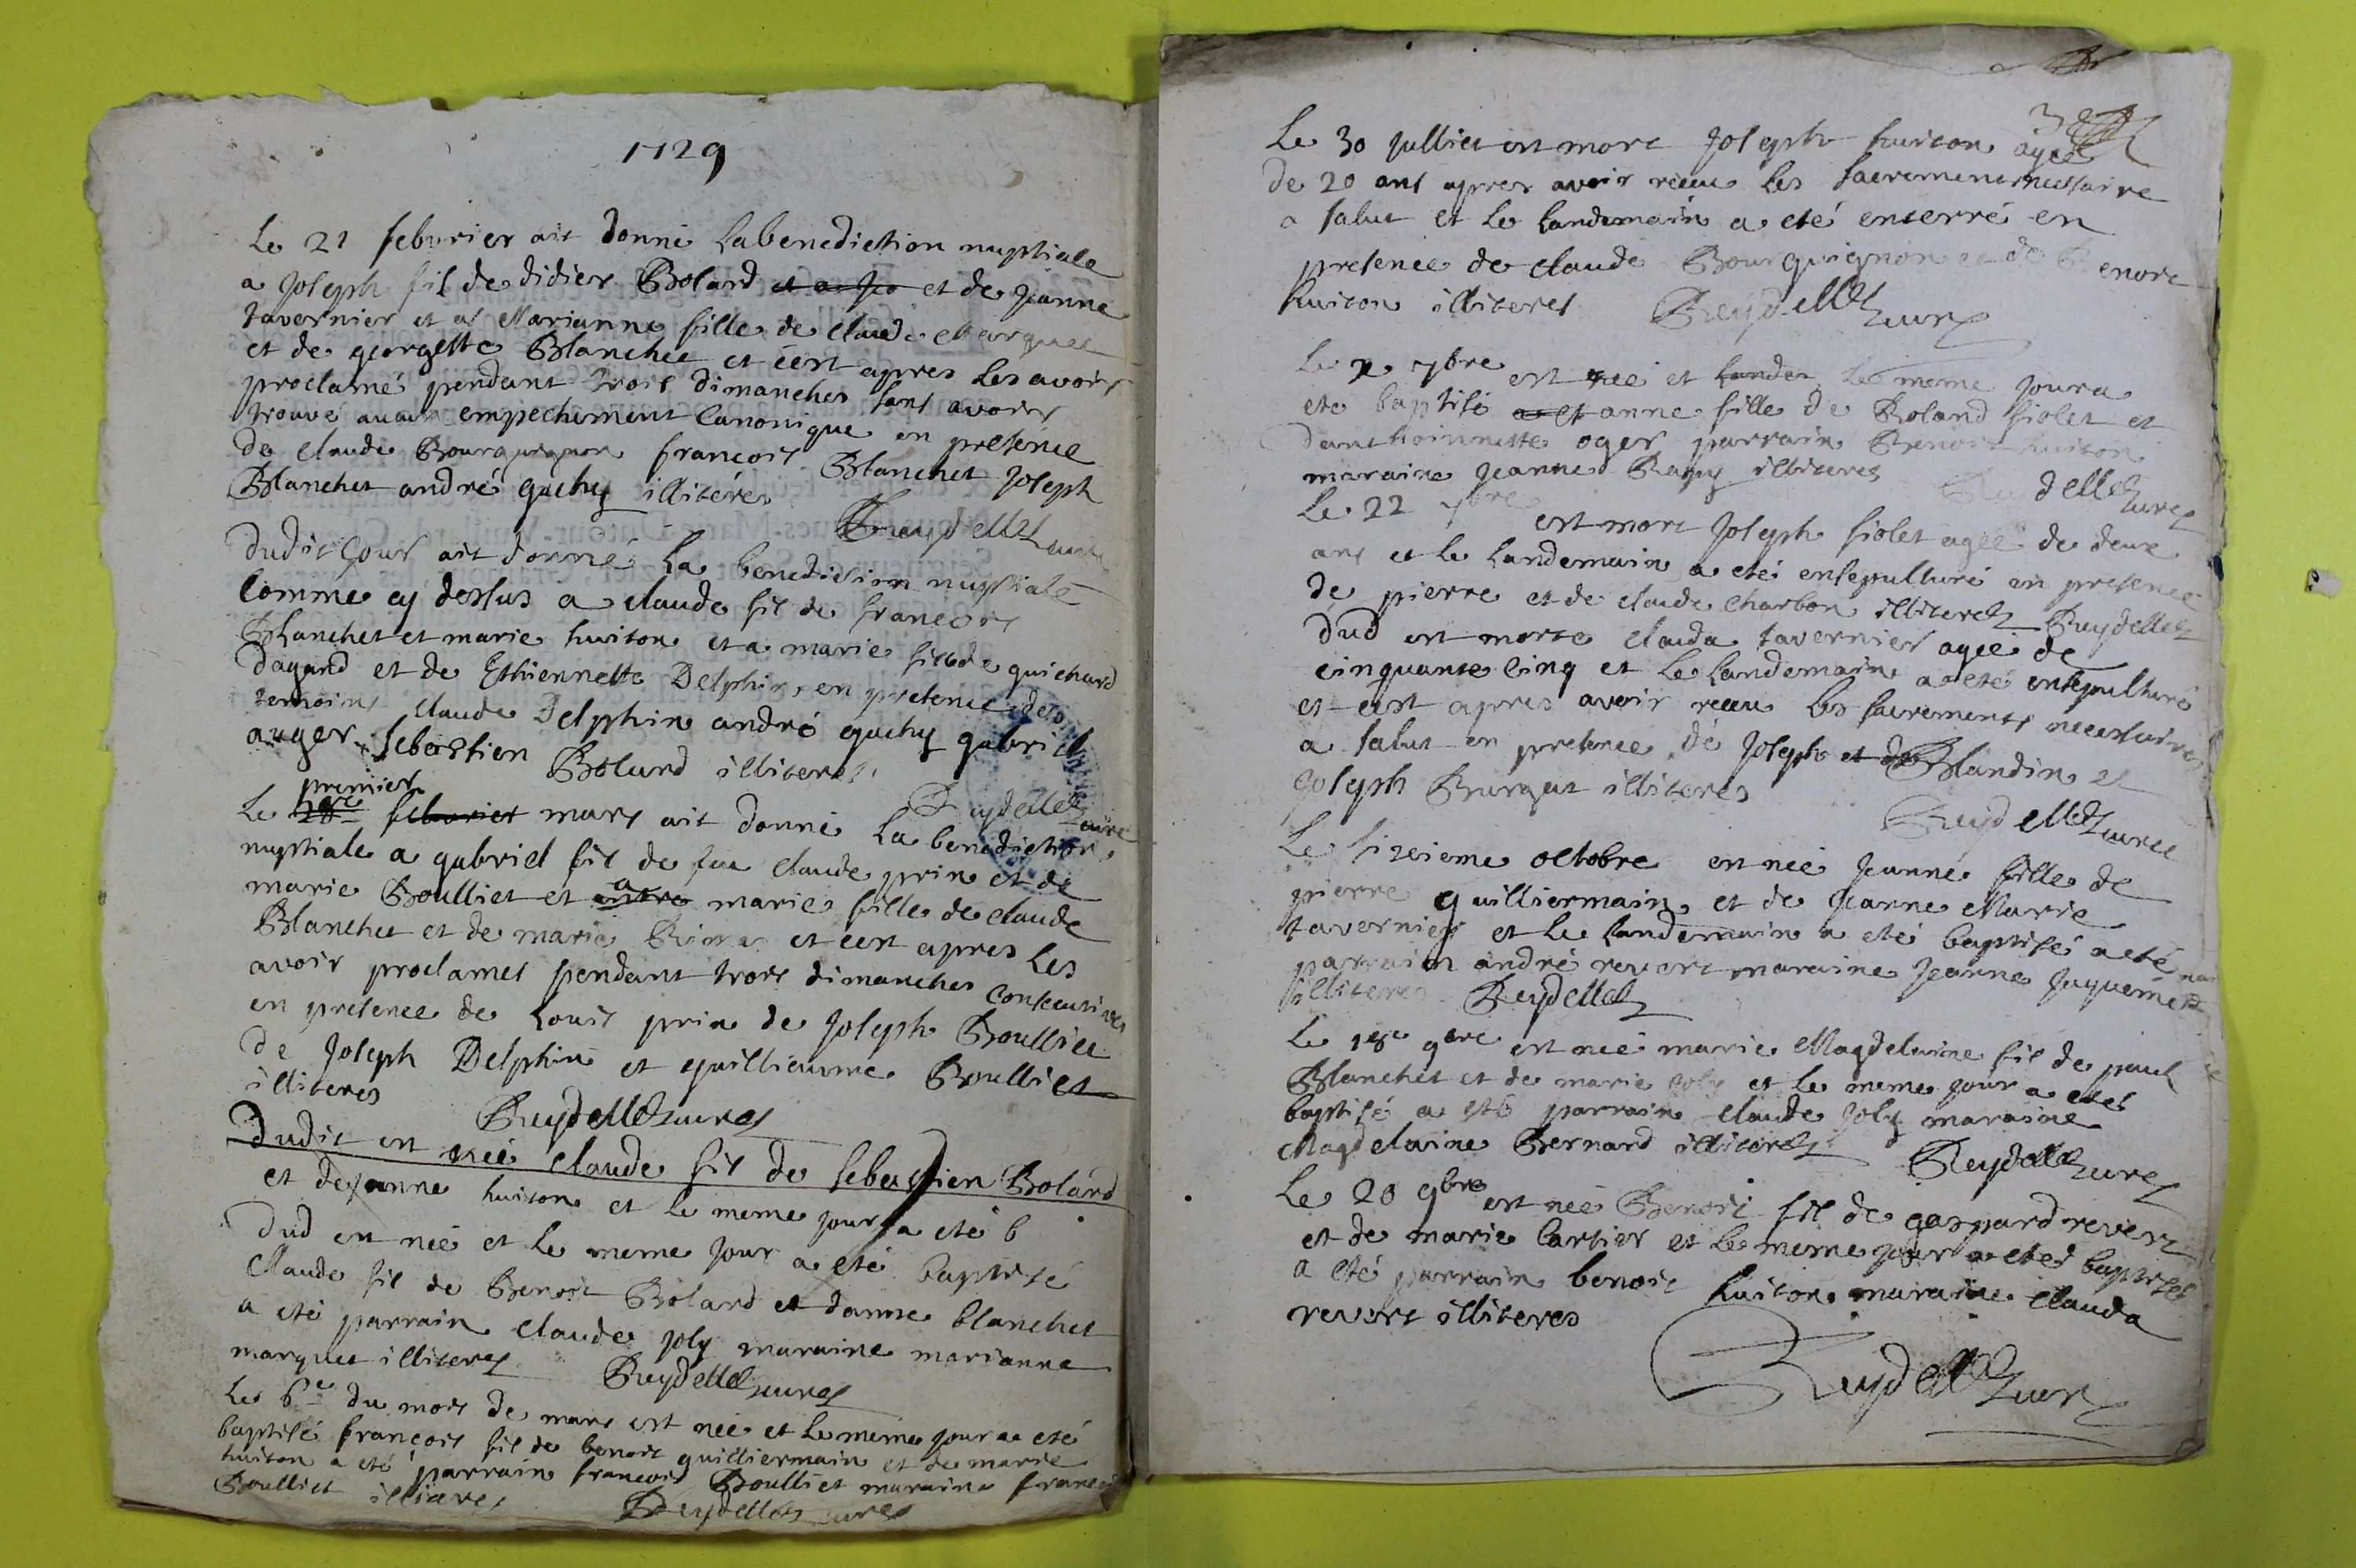 1729
Le 21 feburier ait donné la benediction nuptiale
a Joseph fil de didier Bolard et a Jeo et de Jeanne
tavernier et a Marianne fille de Claude Marquet
et de georgette Blanchet et cest apres les avoir
proclamés pendant trois dimanches sans avoir
trouvé aucun empechement Canonique en presence
de Claude Bourguignon francois Blanchet Joseph
Blanchet andré gachy illiteres
Reydellet curé
Dudit jour ait donné La benediction nuptiale
Comme cy dessus a claude fil de francois
Blanchet et marie huiton et a marie fille de guichard
dagand et de Ethiennette Delphin, en presence des
temoins claude Delphin andré gachy gabriel
auger Sebastien Bolard illiteres.
Reydellet curé
premier
Le feburier mars ait donné La benediction
nuptiale a gabriel fil de feu claude prin et de
marie Boulliet et a marie fille de claude
Blanchet et de marie et cest apres les
avoir proclamés pendant trois dimanches consecutives
en presence de Louis prin de Joseph Boulliet
de Joseph Delphin et guillieaume Boulliet
illiteres Reydellet curé
Dudit est neé claude fil de sebastien Bolard
et de jeanne huiton et le meme jour a eté b
Dud est neé et le meme jour a eté baptisé
Claude fil de Benoit Bolard et danne blanchet
a eté parrain claude joly maraine marianne
marquet illiteres Reydellet curé
Le 6e du mois de mars est neé et le meme jour a eté
baptisé francois fil de benoit guilliermain et de marie
huiton a eté parrain francois Boulliet maraine
Boulliet illiteres Reydellet curé
Le 30 julliet est mort Joseph huiton ageé
de 20 ans apres avoir receu les sacrement necessaire
a salut et le landemain a eté enterré en
presence de claude Bourguignon et de benoit
huiton illiteres Reydellet curé
Le 7bre est neé et landes le meme jour a
ete baptisé anne fille de Roland fiolet et
danthoinnette oger parrain Benoit huiton
maraine Jeanne Ramy illiteres Reydellet curé
Le 22 7bre est mort Joseph fiolet ageé de deux
ans et le landemain a eté ensepulturé en presence
de pierre et de claude charbon illiteres Reydellet
Dud est morte clauda tavernier ageé de
cinquante cinq et le landemain a eté ensepulturé
et cest apres avoir receu les sacrements necessaires
a salut en presence de Joseph et de Blandin et
Joseph Burgat illiteres
Reydellet curé
Le sizeieme octobre est neé Jeanne fille de
pierre guilliermain et de Jeanne Marie
tavernier et le landemain a eté baptisé a eté
parrain andré revert maraine Jeanne Juquemet
illiteres Reydellet
Le 18e 9bre est neé marie Magdelaine fil de paul
Blanchet et de marie joly et le meme jour a eté
baptisé a eté parrain claude joly maraine
Magdelaine Bernard illiteres Reydellet curé
Le 20 9bre est neé Benoit fil de gaspard revert
et de marie Cartier et le meme jour a eté baptisé
a eté parrain benoit huiton maraine clauda
revert illiteres
Reydellet curé